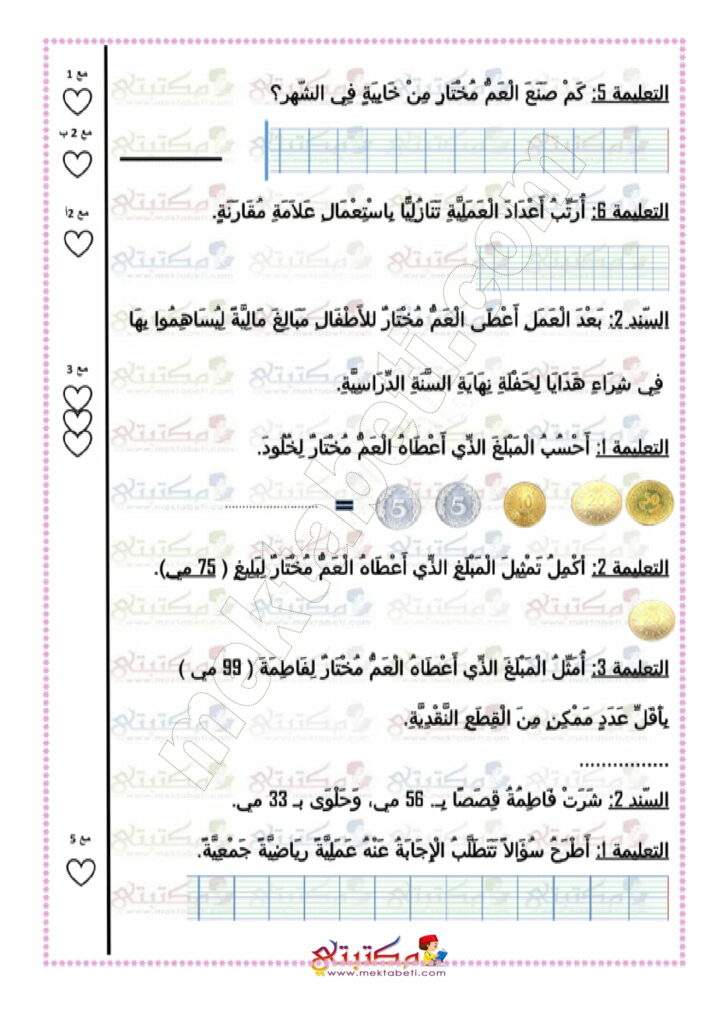 مع 1
التعليمة 5: كَمْ صَنَعَ الْعَمُّ مُخْتَار مِنْ خَابِيَةٍ فِي الشّهر؟
مع 2 ب
مع 2 أ
التعليمة 6: أُرَتِّبُ أَعْدَادَ الْعَمَلِيَّةِ تَنَازُلِيًّا بِاسْتِعْمَالِ عَلاَمَةِ مُقَارَنَةٍ.
السّند 2: بَعْدَ الْعَمَلِ أَعْطَى الْعَمُّ مُخْتَارٌ للأَطْفَالِ مَبَالِغَ مَالِيَّةً لِيُسَاهِمُوا بِهَا
فِي شِرَاءِ هَدَايَا لِحَفْلَةِ نِهَايَةِ السَّنَةِ الدِّرَاسِيَّةِ.
مع 3
التعليمة 1: أَحْسُبُ الْمَبْلَغَ الذِّي أَعْطَاهُ الْعَمُّ مُخْتَارٌ لِخُلُودَ.
20 10 5 5 = ....................
التعليمة 2: أكْمِلُ تَمْثِيلَ الْمَبْلَغِ الذِّي أَعْطَاهُ الْعَمُّ مُخْتَارٌ لِبَلِيغِ ( 75 مي).
التعليمة 3: أُمَثِّلُ الْمَبْلَغَ الذِّي أَعْطَاهُ الْعَمُّ مُخْتَارٌ لِفَاطِمَةَ ( 99 مي )
بِأَقَلِّ عَدَدٍ مَمْكِنٍ مِنَ الْقِطَعِ النَّقْدِيَّةِ.
................
السّند 2: شَرَتْ فَاطِمَةُ قِصَصًا بِـ 56 مي، وَحَلْوَى بـ 33 مي.
مع 5
التعليمة 1: أَطْرَحُ سُؤَالاً تَتَطَلَّبُ الْإِجَابَةُ عَنْهُ عَمَلِيَّةً رِيَاضِيَّةً جَمْعِيَّةً.
مكتبتي
www.mektabeti.com
mektabeti.com